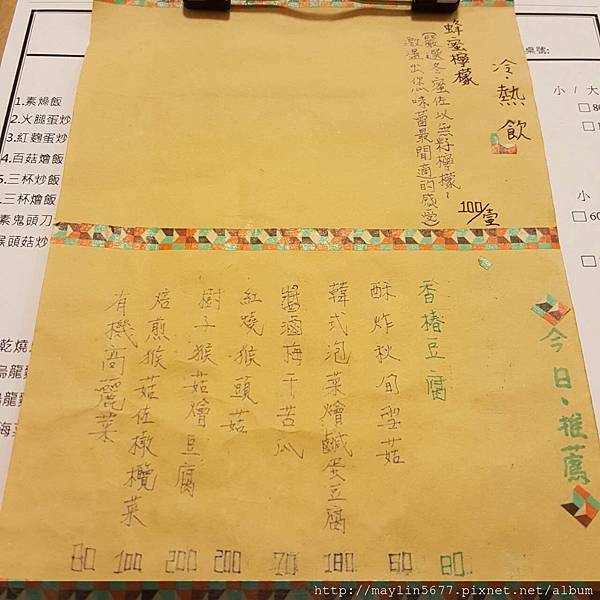 冷·熱飲
蜂蜜檸檬
(嚴選冬蜜佐以無籽檸檬~
激盪出您味蕾最閒適的感受)
100/壹
今日·推薦
香椿豆腐 80
酥炸秋旬型菇
韓式泡菜燴鹹蛋豆腐 180
醬滷梅干苦瓜
紅燒猴頭菇 200
樹子猴菇燴豆腐 200
焙煎猴菇佐橄欖菜 100
有機高麗菜 80
桌號:
小 / 大
小
60
1.素燥飯
2.火腿蛋炒
3.紅麴蛋炒
4.百菇燴飯
5.三杯炒飯
三杯燴飯
素鬼頭刀
猴頭菇炒
乾燒
烏龍
烏龍
海
http://maylin5677.pixnet.net/album